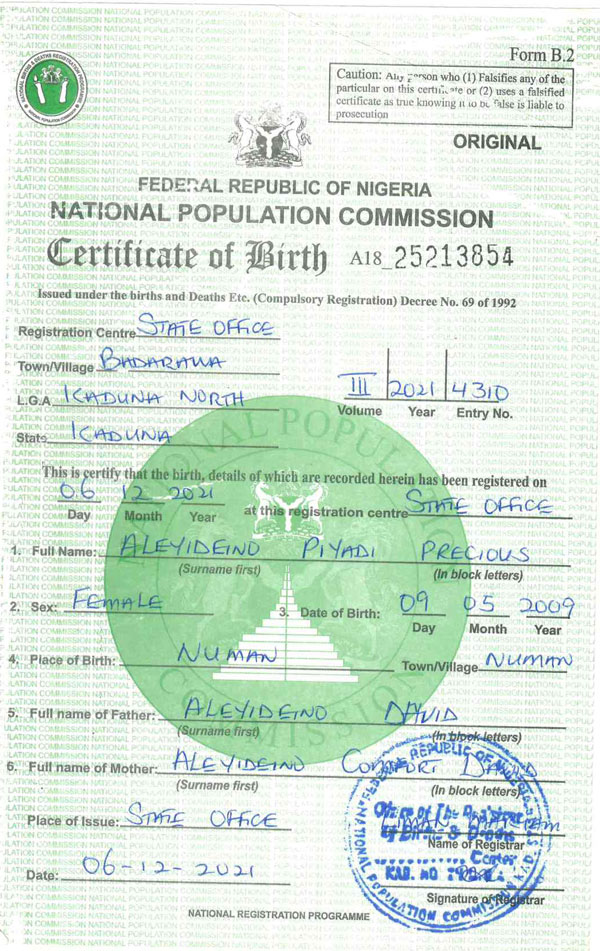 Form B.2
Caution: Any person who (1) Falsifies any of the
particular on this certificate or (2) uses a falsified
certificate as true knowing it to be false is liable to
prosecution
ORIGINAL
FEDERAL REPUBLIC OF NIGERIA
NATIONAL POPULATION COMMISSION
Certificate of Birth A18_25213854
Issued under the births and Deaths Etc. (Compulsory Registration) Decree No. 69 of 1992
Registration Centre STATE OFFICE
Town/Village BADARAWA
L.G.A KADUNA NORTH
III 2021 4310
Volume Year Entry No.
State KADUNA
This is certify that the birth, details of which are recorded herein has been registered on
06 12 2021 at this registration centre STATE OFFICE
Day Month Year
1. Full Name: ALEYIDEINO PIYADI PRECIOUS
(Surname first) (In block letters)
2. Sex: FEMALE 3. Date of Birth: 09 05 2009
Day Month Year
4. Place of Birth: NUMAN Town/Village NUMAN
5. Full name of Father: ALEYIDEINO DAVID
(Surname first) (In block letters)
6. Full name of Mother: ALEYIDEINO COMFORT DAVID
(Surname first) (In block letters)
Place of Issue: STATE OFFICE
Name of Registrar
Date: 06-12-2021
Signature of Registrar
NATIONAL REGISTRATION PROGRAMME
FEDERAL REPUBLIC OF NIGERIA
Office of The Registrar
of Births & Deaths
Center
NATIONAL POPULATION COMMISSION